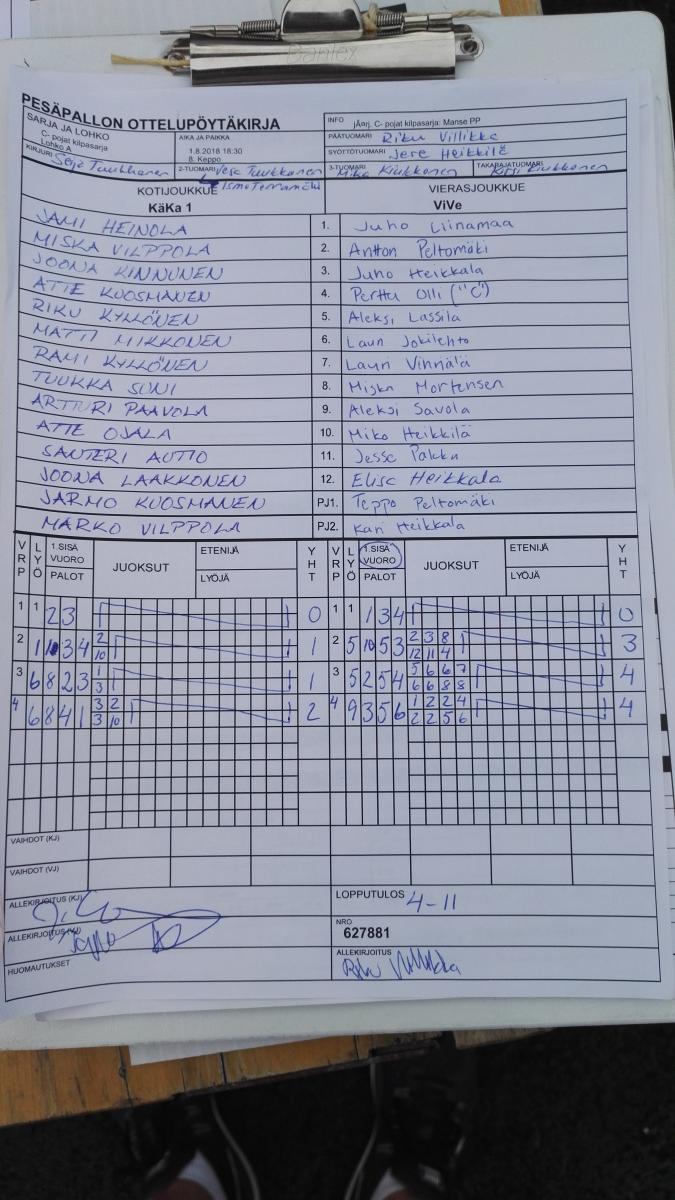 Banlex
PESÄPALLON OTTELUPÖYTÄKIRJA
SARJA JA LOHKO
C- pojat kilpasarja
Lohko A
AIKA JA PAIKKA
1.8.2018 18:30
8. Keppo
INFO jÄrj. C- pojat kilpasarja: Manse PP
PÄÄTUOMARI Riku Villikka
SYÖTTÖTUOMARI Jere Heikkilä
KIRJURI Seija Tuukkanen
2-TUOMARI Vesa Tuukkanen
3-TUOMARI Mika Kiukkonen
TAKARAJATUOMARI Kirsi Kiukkonen
KOTIJOUKKUE
KäKa 1
VIERASJOUKKUE
ViVe
JAMI HEINOLA 1. Juho Liinamaa
MISKA VILPPOLA 2. Antton Peltomäki
JOONA KINNUNEN 3. Juho Heikkala
ATTE KUOSMANEN 4. Perttu Olli ("C")
RIKU KYLLÖNEN 5. Aleksi Lassila
MATTI MIKKONEN 6. Lauri Jokilehto
RAMI KYLLÖNEN 7. Lauri Vihnälä
TUUKKA SUNI 8. Miska Mortensen
ARTTURI PAAVOLA 9. Aleksi Savola
ATTE OJALA 10. Miko Heikkilä
SANTERI AUTIO 11. Jesse Pakka
JOONA LAAKKONEN 12. Elise Heikkala
JARMO KUOSMANEN PJ1. Teppo Peltomäki
MARKO VILPPOLA PJ2. Kari Heikkala
VRP LYÖ 1.SISÄ VUORO PALOT JUOKSUT ETENIJÄ LYÖJÄ YHT VRP LYÖ 1.SISÄ VUORO PALOT JUOKSUT ETENIJÄ LYÖJÄ YHT
1 1 2 3 0 1 1 1 3 4 0
2 1 3 4 2 10 1 2 5 10 5 3 2 3 8 12 11 4 3
3 6 8 2 3 1 3 1 3 5 2 5 4 5 6 6 7 6 6 8 8 4
4 6 8 4 1 3 2 3 10 2 4 9 3 5 6 1 2 2 4 2 2 5 6 4
VAIHDOT (KJ)
VAIHDOT (VJ)
ALLEKIRJOITUS (KJ)
LOPPUTULOS 4-11
ALLEKIRJOITUS (VJ)
NRO
627881
HUOMAUTUKSET
ALLEKIRJOITUS Riku Villikka